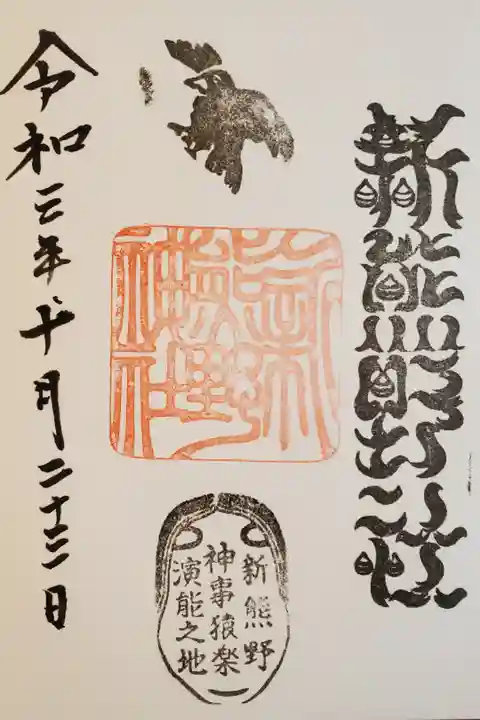 新熊野神社
新熊野神社
新熊野
神事猿楽
演能之地
令和三年十月二十三日